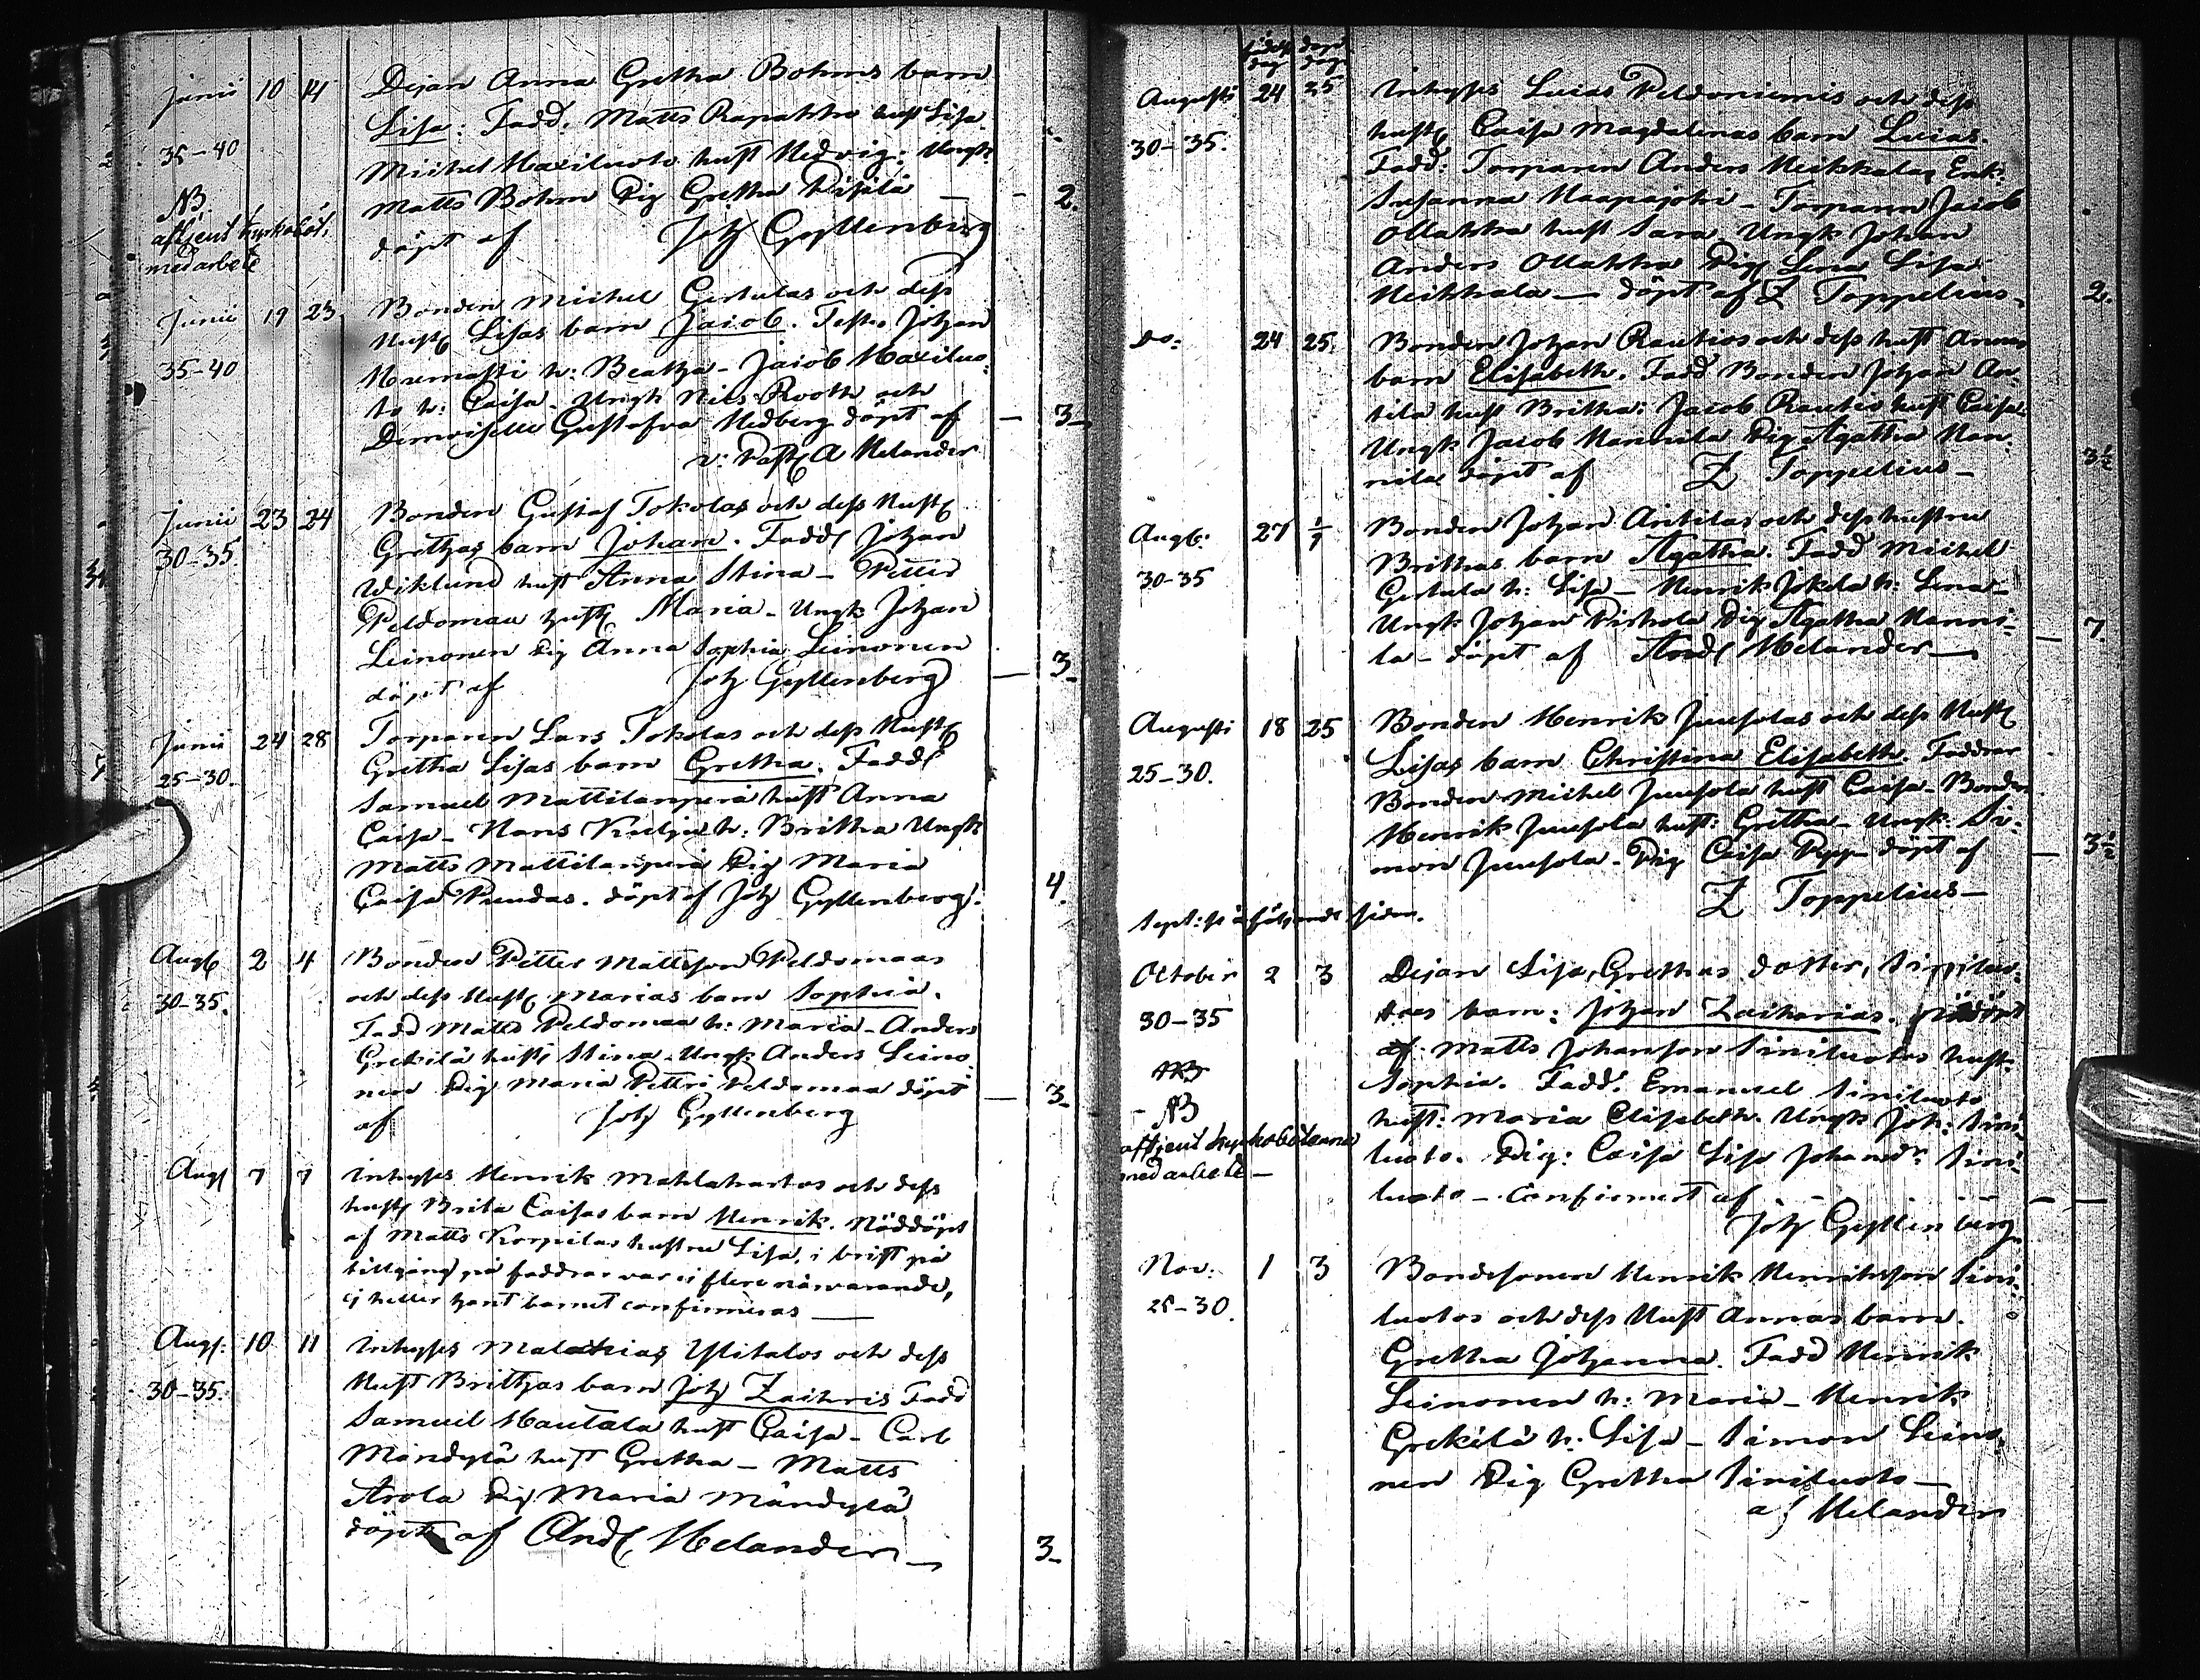 Junii 10 14 Pigan Anna Gretha Bohms barn
Lisa: Fadd. Matts Rapakko hust Lisa
35–40
Michel Maxiluoto hust Hedvig: Ungk:
Matts Bohm Pig Gretha – 2.
NB
aftjent kyrkobot.
med arbete
döpt af Joh Gyllenberg
Junii 19 23 Bonden Michel Gertulas och dess
Hust Lisas barn Jacob. Test. Johan
35–40
h: Beatha – Jacob Maxiluo
to h: Caisa. Ungk Nils Rooth och
Demoiselle Gustafva Hedberg döpt af – 3
v: Past A Helander
Junii 23 24 Bonden Gustaf Tokolas och dess Hust
30–35.
Grethas barn Johan. Fadd Johan
Wiklund hust Anna Stina – Petter
Peldomaa hust Maria – Ungk Johan
Leinonen Pig Anna Sophia Leinonen
döpt af Joh Gyllenberg – 3
Junii 24 28 Torparen Lars Tokolas och dess Hust
25–30.
Gretha Lisas barn Gretha. Fadd
Samuel Mattilanperä hust Anna
Caisa – Hans h: Britha Ungk
Matts Mattilanperä Pig Maria
Caisa Pundas. döpt af Joh Gyllenberg. 4.
Aug 2 4 Bonden Petter Mattsson Peldomaas
30–35.
och dess Hust Marias barn Sophia.
Fadd Matts Peldomaa h: Maria – Anders
Grekilä hust Stina – Ungk Anders Leino
nen Pig Maria Pettri Peldomaa döpt
af Joh Gyllenberg – 3
Aug 7 7 Inhyses Henrik Mahlakartos och dess
hust Brita Caisas barn Henrik. Nöddöpt
af Matts Korpilas hustru Lisa, i brist på
tillgång på faddrar var ej flere närvarande,
ej heller hant barnet confirmeras
Aug: 10 11 Inhyses Malachias Ylitalos och dess
30–35.
Hust Brithas barn Joh Zachris Fadd
Samuel Hautala hust Caisa – Carl
Mändylä hust Gretha – Matts
Arola Pig Maria Mändylä
döpt af And Helander – 3

födelse dag döpt dag
Augusti 24 25 Inhyses Lucas Peldoniemis och dess
30–35.
hust Caisa Magdalenas barn Lucas.
Fadd: Torparen Anders Heikkala, Enk:
Susanna Haapajoki – Torparen Jacob
Ollakka hust Sara Ungk Johan
Anders Ollakka Pig Lena Lisa
Heikkala – döpt af Z Toppelius 2.
do: 24 25. Bonden Johan Rautios och dess hust Annas
barn Elisabeth. Fadd Bonden Johan An
tila hust Britha: Jacob Rautio hust Caisa
Ungk Jacob Hannila Pig Agatha Han
nila döpt af Z Toppelius – 3½
Aug: 27 1/9 Bonden Johan Antilas och dess hustru
Brithas barn Agatha. Fadd Michel
30–35
Gertula h: Lisa – Henrik Jokela h: Lena –
Ungk Johan Pig Agatha Hanni
la – döpt af And Helander – 7.
Augusti 18 25 Bonden Henrik Juusolas och dess Hust
Lisas barn Christina Elisabeth. Faddrar
25–30.
Bonden Michel Juusola hust Caisa – Bonden
Henrik Juusola hust: Gretha – Ungk. Si
mon Juusola – Pig Caisa döpt af – 3½
Z Toppelius –
Sept: se på följande sidan.
October 2 3 Pigan Lisa Grethas dotter, Siniluo
30–35
toas barn: Johan Zacharias. nöddöpt
af Matts Johansson Siniluotos hust
NB
Sophia. Fadd. Emanuel Siniluoto
– NB
hust: Maria Elisabeth. Ungk Joh: Sini
aftjent kyrkoböterna
luoto. Pig: Caisa Lisa Johansdr Sini
med arbete –
luoto – Confirmert af
Joh Gyllenberg
Nov: 1 3 Bondesonen Henrik Henriksson Sini
25–30.
luotos och dess Hust Annas barn.
Gretha Johanna. Fadd Henrik
Leinonen h: Maria – Henrik
Grekilä h: Lisa – Simon Leino
nen Pig Gretha Siniluoto –
af Helander